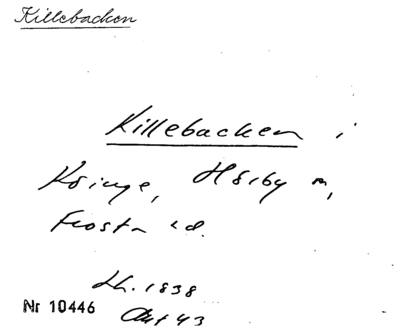 Killebacken
Killebacken i
Kringe, Hörby n,
Frosta hd.
Lk. 1838
Akt 43
Nr 10446